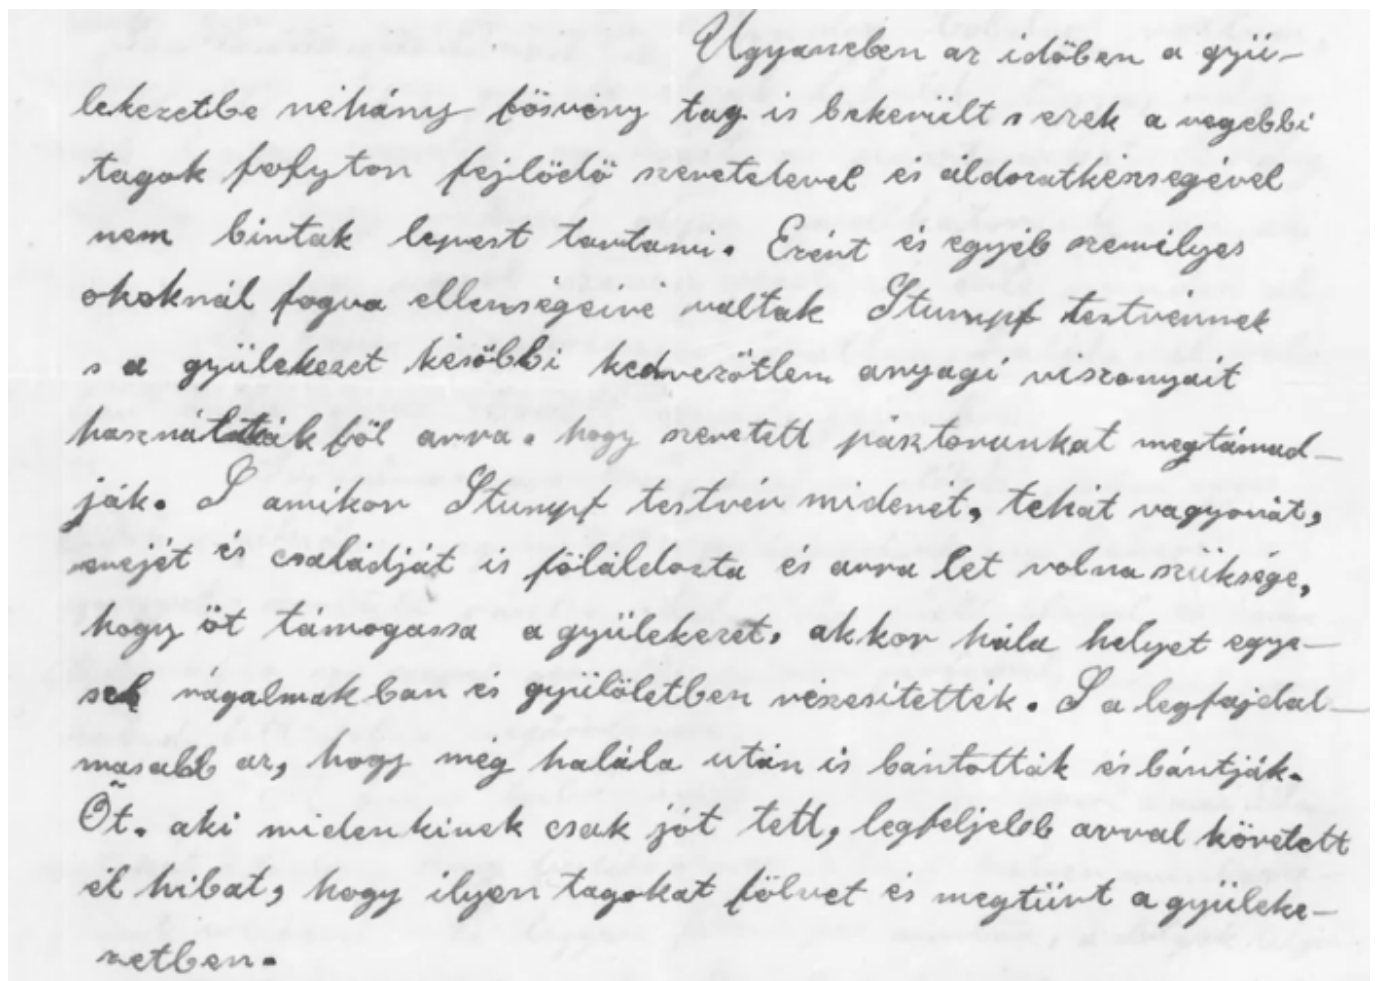 Ugyanebben az időben a gyü-
lekezetbe néhány fösvény tag is bekerült s ezek a régebbi
tagok folyton fejlödö szeretetével és áldozatkészségével
nem birtak lépest tartani. Ezért és egyéb személyes
okoknál fogva ellenségeivé váltak Stumpf testvérnek
s a gyülekezet későbbi kedvezőtlem anyagi viszonyait
használták föl arra. hogy szeretett pásztorunkat megtámad-
ják. S amikor Stumpf testvér midenét, tehát vagyonát,
erejét és családját is föláldozta és arra let volna szüksége,
hogy öt támogassa a gyülekezet. akkor hála helyet egye-
sek rágalmakban és gyülöletben részesitették. S a legfajdal-
masabb az, hogy még halála után is bántották és bántják.
Őt. aki midenkinek csak jót tett, legfeljebb avval követett
él hibát, hogy ilyen tagokat fölvet és megtürt a gyüleke-
zetben.